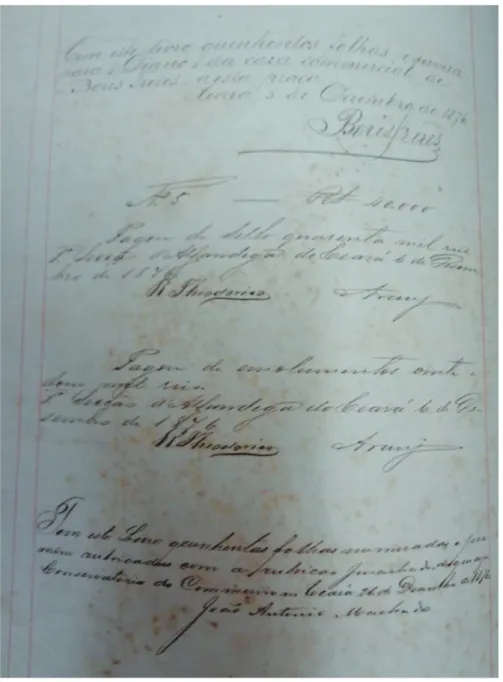 Tem este livro quenhentos folhas, e servirá
para "Diario" da casa commercial de
"Boris Frères" desta praça
Ceará 5 de Dezembro de 1876
Boris frères
Nº 5 — R$ 40.000
Pagou de Sello quarenta mil reis
1ª Secção d'Alfandega do Ceará 6 de Dezem
bro de 1876
R Theodorico Arauj
Pagou de emolumentos vinte e
dous mil reis
1ª Secção d'Alfandega do Ceará 6 de De
sembro de 1876
R Theodorico Arauj
Tem este Livro quenhentas folhas numeradas e
rubricadas com a rubrica Jmachado de
Conservatoria do Commercio no Ceará 26 de Dezembro de 1876
João Antonio Machado